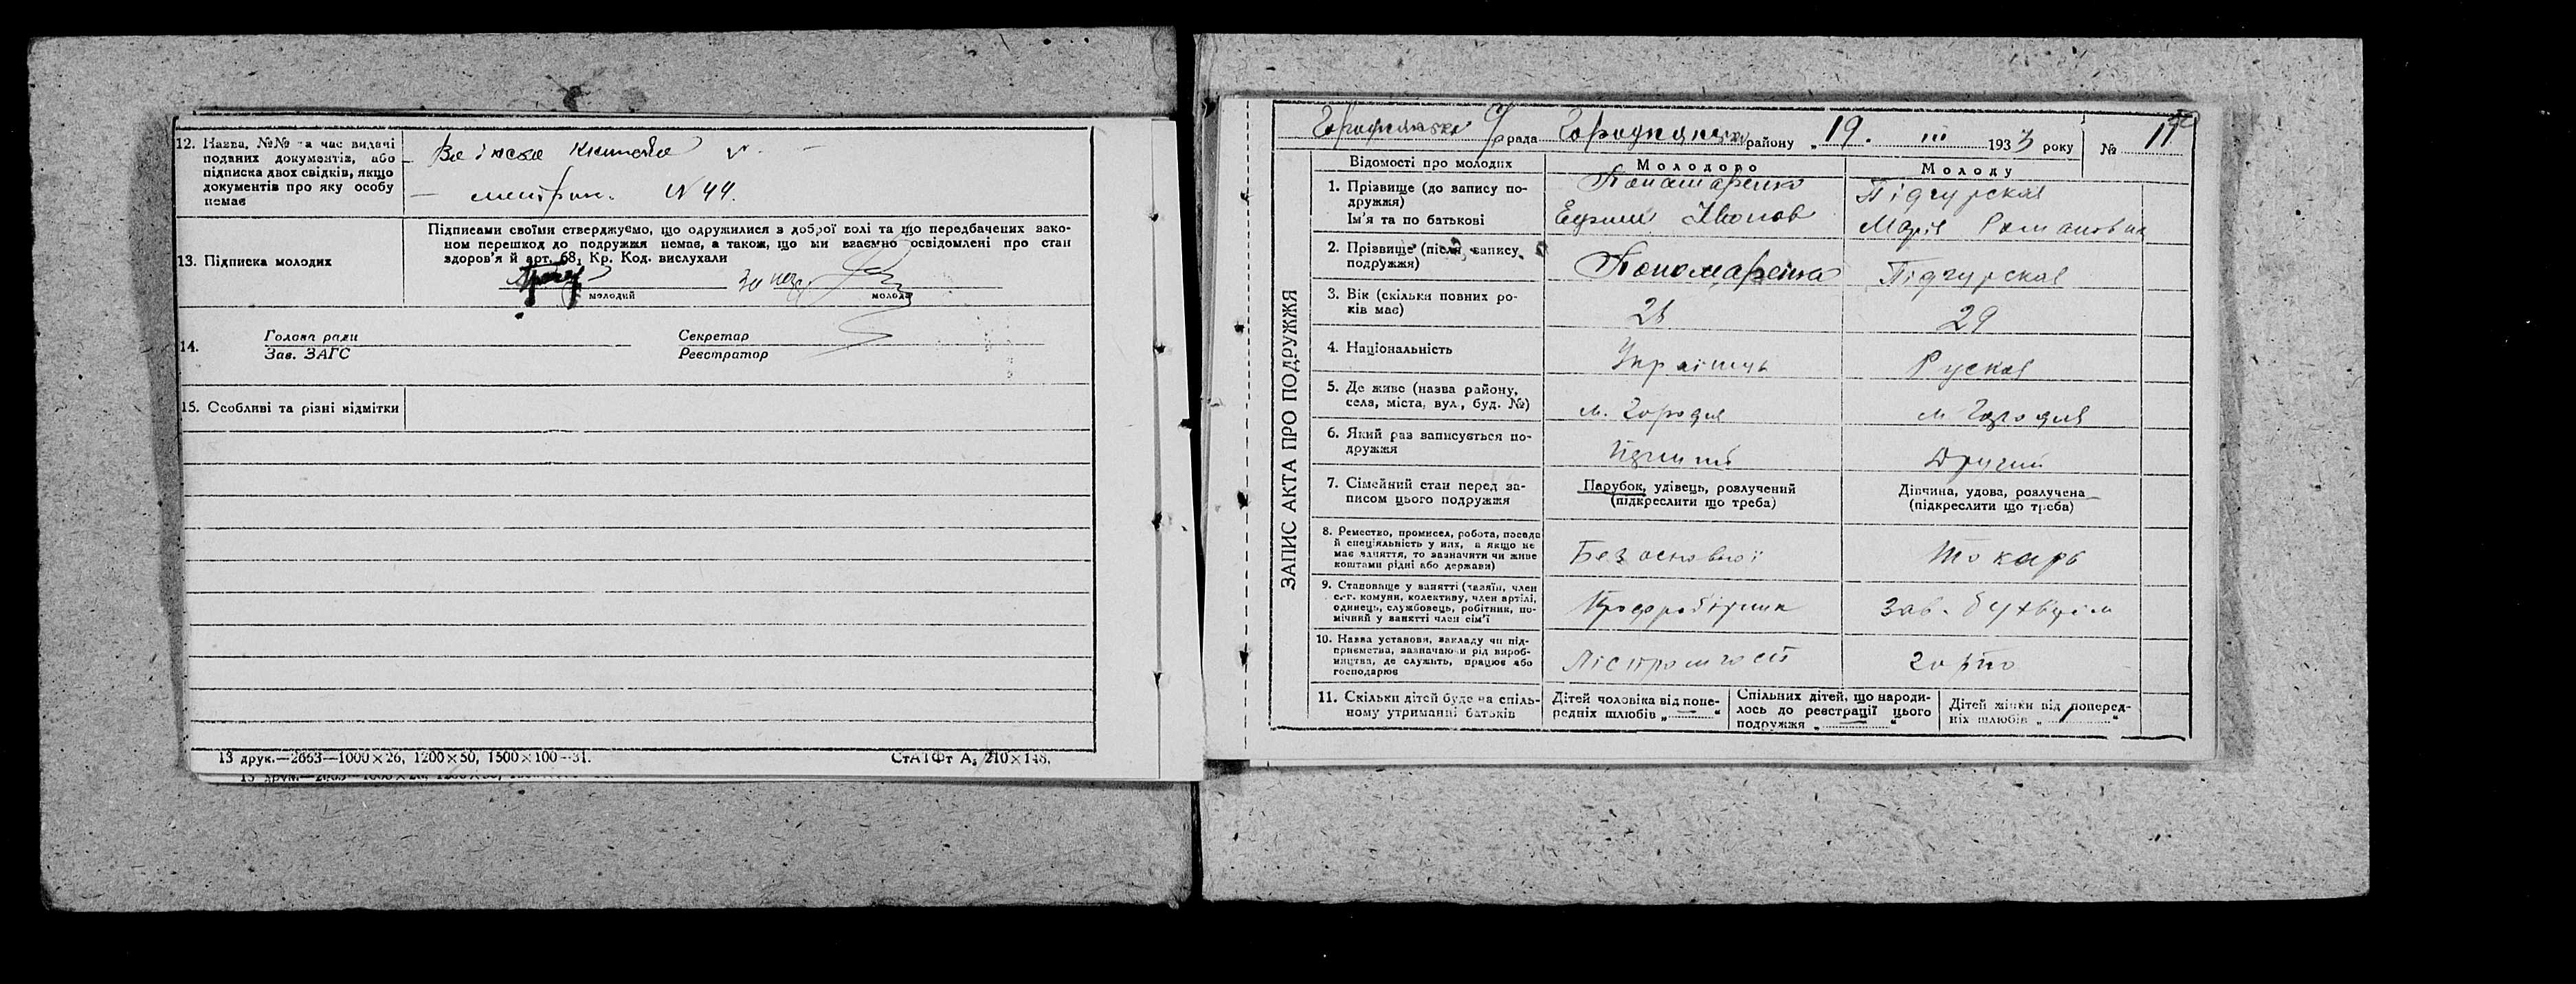 12. Назва, №№ та час видачі
поданих документів, або
підписка двох свідків, якщо
документів про яку особу
немає
книжка
— метрик. N 44.
13. Підписка молодих
Підписами своїми стверджуємо, що одружилися з доброї волі та що передбачених зако-
ном перешкод до подружжя немає, а також, що ми взаємно освідомлені про стан
здоров'я й арт. 68, Кр. Код. вислухали
молодий
молода
14.
Голова ради
Зав. ЗАГС
Секретар
Реєстратор
15. Особливі та різні відмітки
13 друк.—2663—1000×26, 1200×50, 1500×100—31.
СтАТФт А₅ 210×148.
ЗАПИС АКТА ПРО ПОДРУЖЖЯ
рада району „19. III 1933 року № 11
Відомості про молодих
Молодого
Молоду
1. Прізвище (до запису по-
дружжя)
Ім'я та по батькові
Пономаренко
Ефим Іванов
Підгурская
Марія Романовна
2. Прізвище (після запису
подружжя)
Пономаренко
Підгурская
3. Вік (скільки повних ро-
ків має)
29
4. Національність
Українець
Руская
5. Де живе (назва району,
села, міста, вул., буд. №)
м. Городня
м Городня
6. Який раз записується по-
дружжя
Другий
7. Сімейний стан перед за-
писом цього подружжя
Парубок, удівець, розлучений
(підкреслити що треба)
Дівчина, удова, розлучена
(підкреслити що треба)
8. Ремество, промисел, робота, посада
й спеціяльність у них, а якщо не
має заняття, то зазначити чи живе
коштами рідні або держави)
Без основної
токарь
9. Становище у занятті (хазяїн, член
с.-г. комуни, колективу, член артілі,
одинець, службовець, робітник, по-
мічний у занятті член сім'ї
Профробітник
Зав.
10. Назва установи, закладу чи під-
приємства, зазначаючи рід вироб-
ництва, де служить, працює або
господарює
11. Скільки дітей буде на спіль-
ному утриманні батьків
Дітей чоловіка від попе-
редніх шлюбів „—“
Спільних дітей, що народи-
лось до реєстрації цього
подружжя „—“
Дітей жінки від поперед-
ніх шлюбів „1“